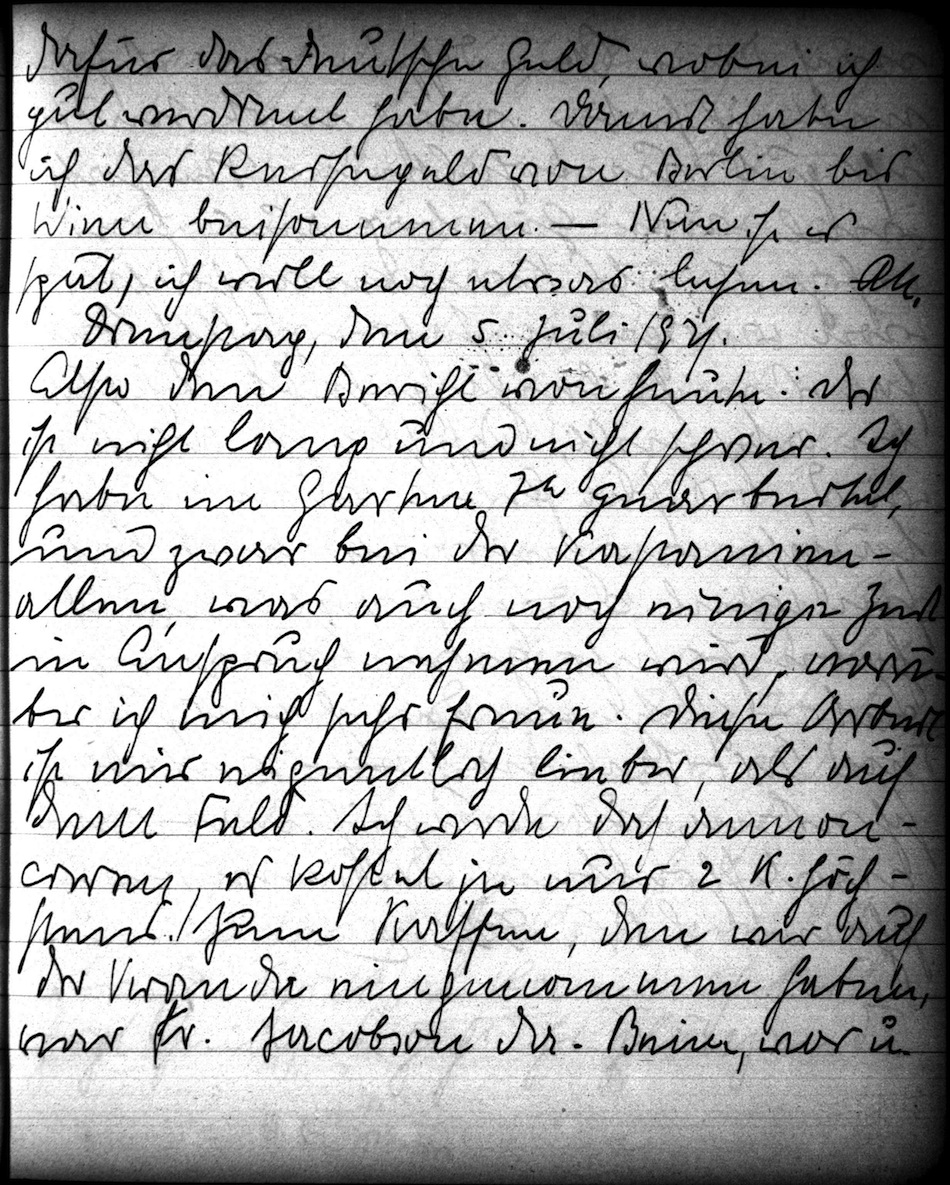 dafür das deutsche Geld, wobei ich
gut verdient habe. Damit habe
ich das Reisegeld von Berlin bis
Wien beisammen. — Nun ist es
spät, ich will noch etwas lesen.
Dienstag, den 5. Juli 1921.
Also den Bericht von heute: Der
ist nicht lang und nicht schwer. Ich
habe im Garten 7h gearbeitet,
und zwar bei der Kastanien-
allee, was auch noch einige Zeit
in Anspruch nehmen wird, worü-
ber ich mich sehr freue. Diese Arbeit
ist mir eigentlich lieber, als auf
dem Feld. Ich werde doch annon-
cieren, es kostet ja nur 2 K. höch-
stens. Zum Kaffee, den wir auf
der Veranda eingenommen haben,
war Fr. Jacobson da. Beim, vor u.